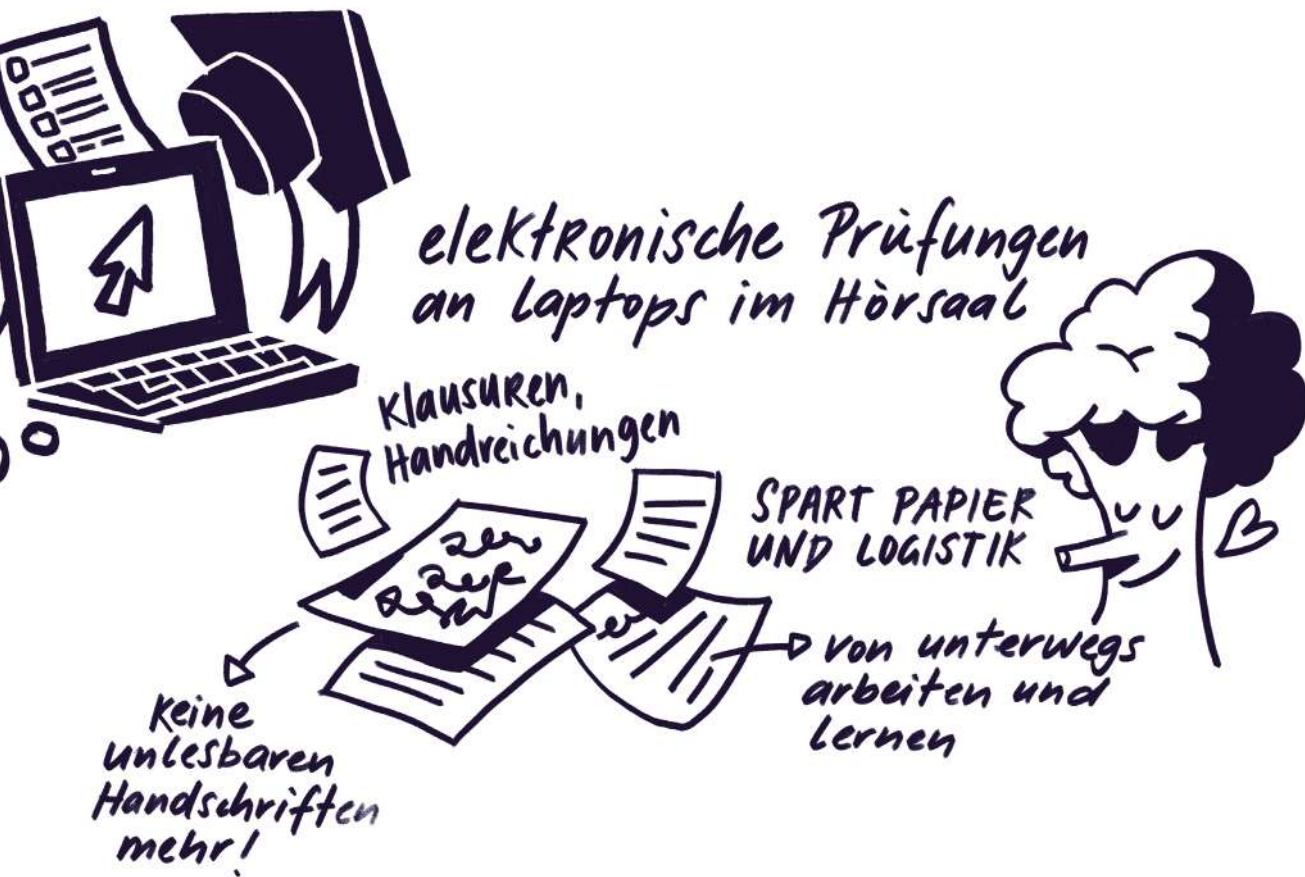 elektronische Prüfungen
an Laptops im Hörsaal
Klausuren,
Handreichungen
SPART PAPIER
UND LOGISTIK
von unterwegs
arbeiten und
lernen
Keine
unlesbaren
Handschriften
mehr!